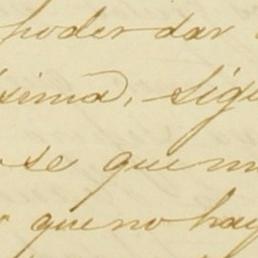 poder dar
sima, sig
se que m
que no hay